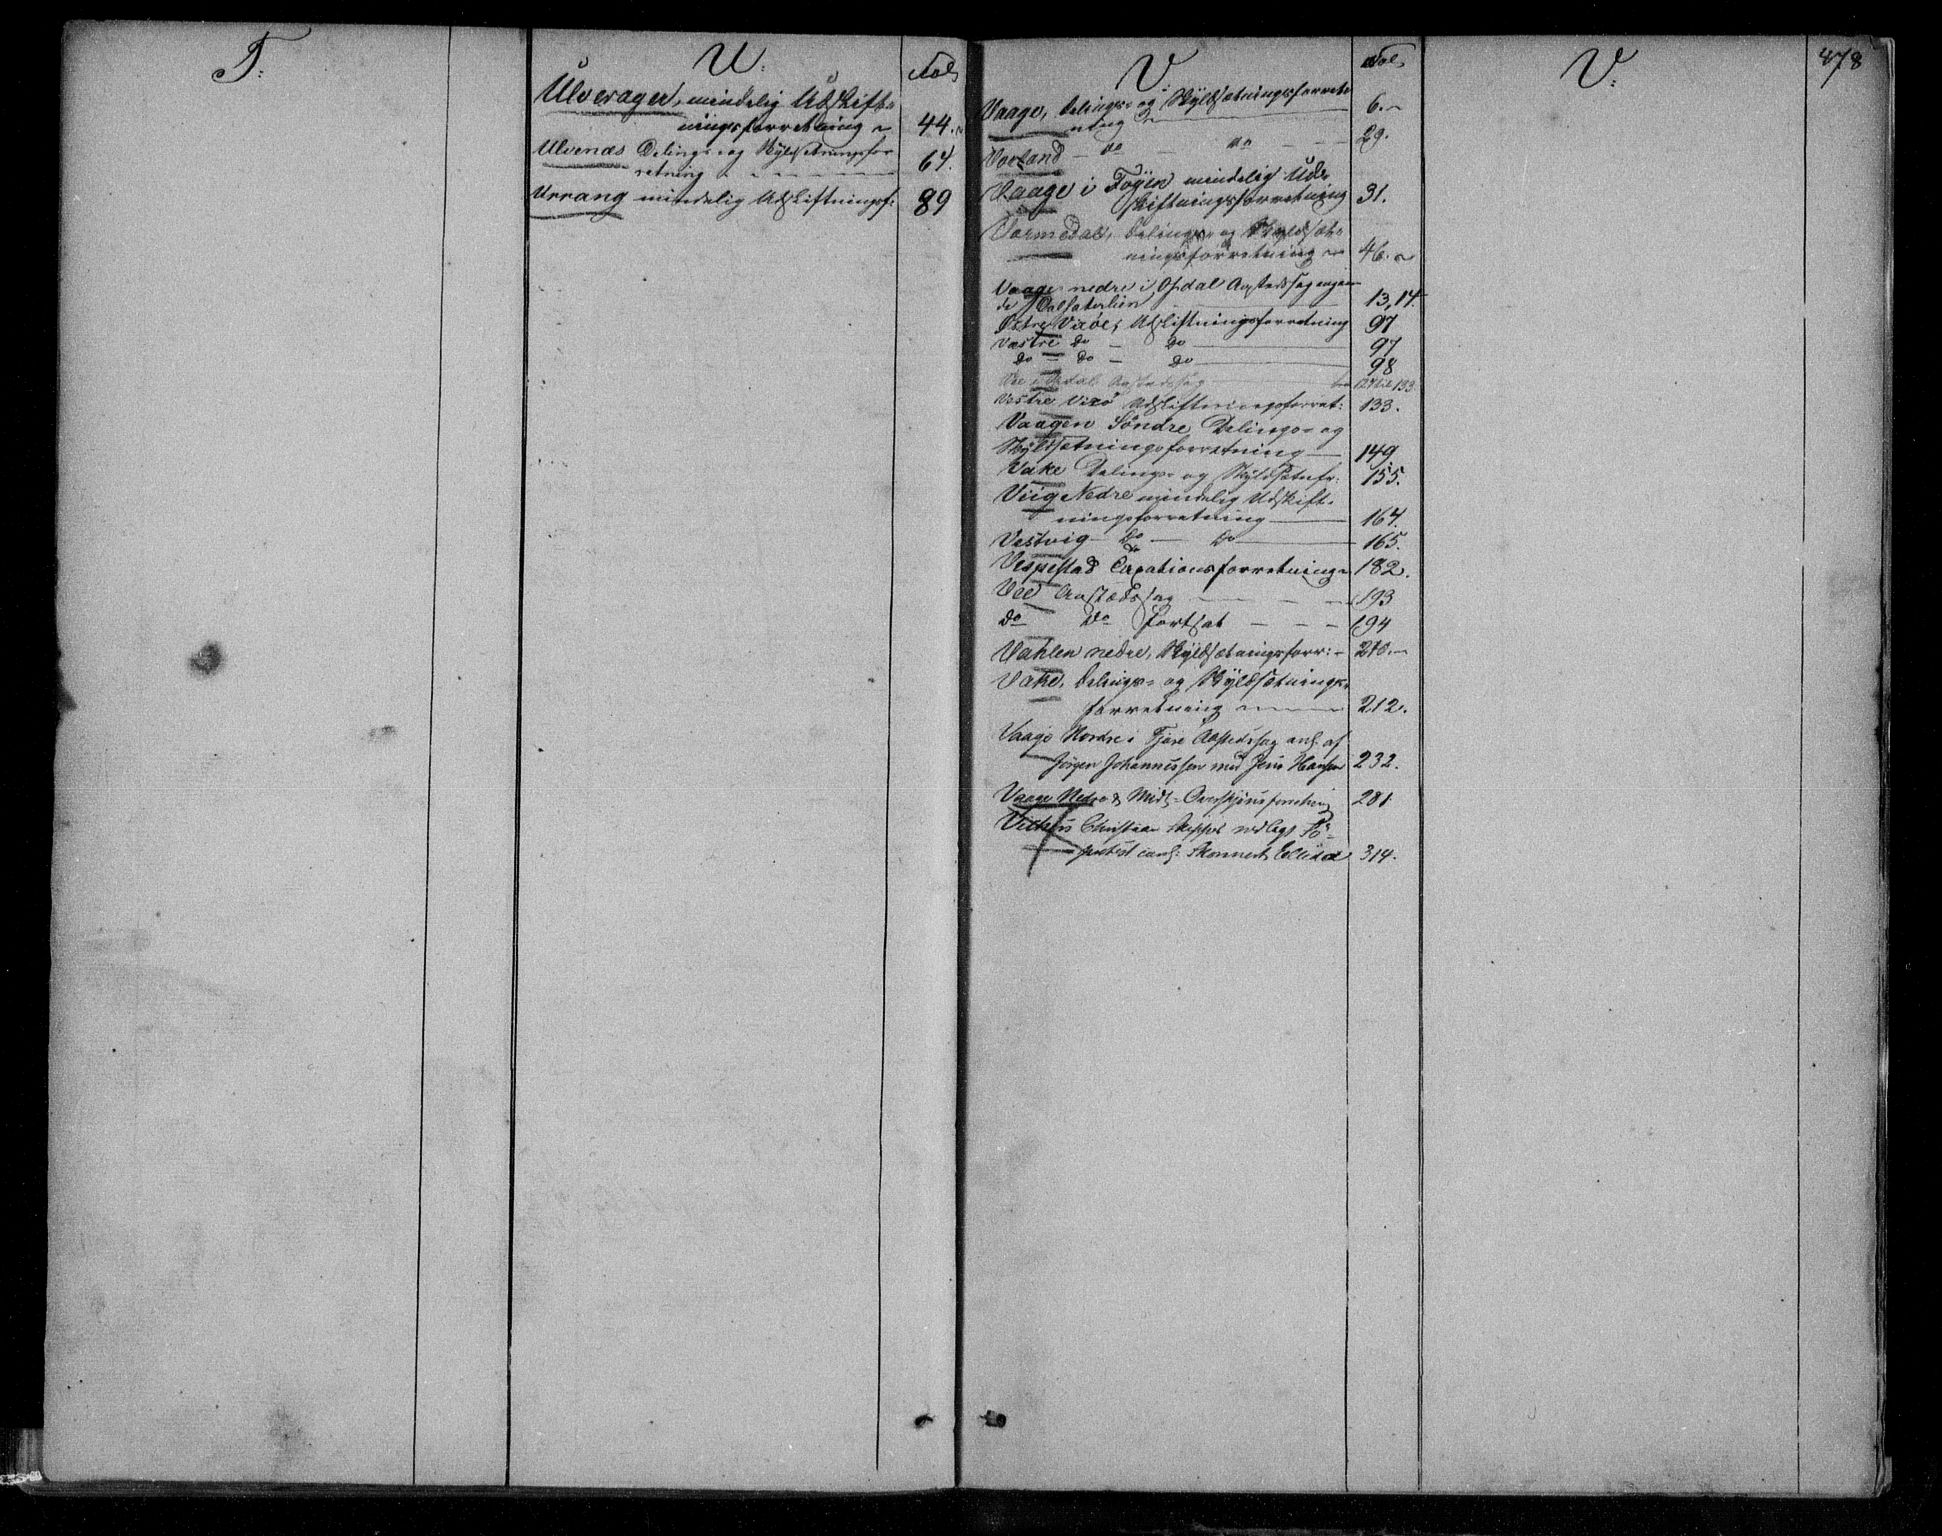 T:
U:
Fol.
Ulverager, mindelig Udskift-
ningsforretning 44.
Ulvenæs Delings- og Skyldsetningsfor
retning 64.
Urrang mindelig Udskiftningsf: 89
V.
Fol.
Vaage, Delings- og Skyldsætningsforret-
ning 6.
Vorland - Do - Do - 29.
Vaage i Føyen mindelig Ud-
skiftningsforretning 31.
Vormedal, Delings- og Skyldsæt-
ningsforretning 46.
Vaage nedre i Opdal Aastedssag angaaen
de 13, 14
Østre Vixøe, Udskiftningsforretning 97
Vestre Do - Do 97
Do - Do - Do 98
Vee i Aastedssag 127 til 133
Vestre Vixø Udskiftningsforret: 133.
Vaagen Søndre Delings- og
Skyldsetningsforretning 149
Vake Delings- og Skyldsetnfr: 155.
Viig Nedre mindelig Udskift-
ningsforretning 164.
Vestvig - Do - Do 165.
Vespestad Taxationsforretning 182.
Vee Aastedssag 193
Do Do fortsat 194
Vahlen nedre, Skyldsætningsforr: 210.
Vake, Delings- og Skyldsætnings-
forretning 212.
Vaage Nordre i Aastedssag anl. af
Jørgen Johannessen mod Jens Hansen 232.
Vaage Nedre & Midt- Overskjønsforretning 281
Christian Skipper
Skonnert 314.
V.
478